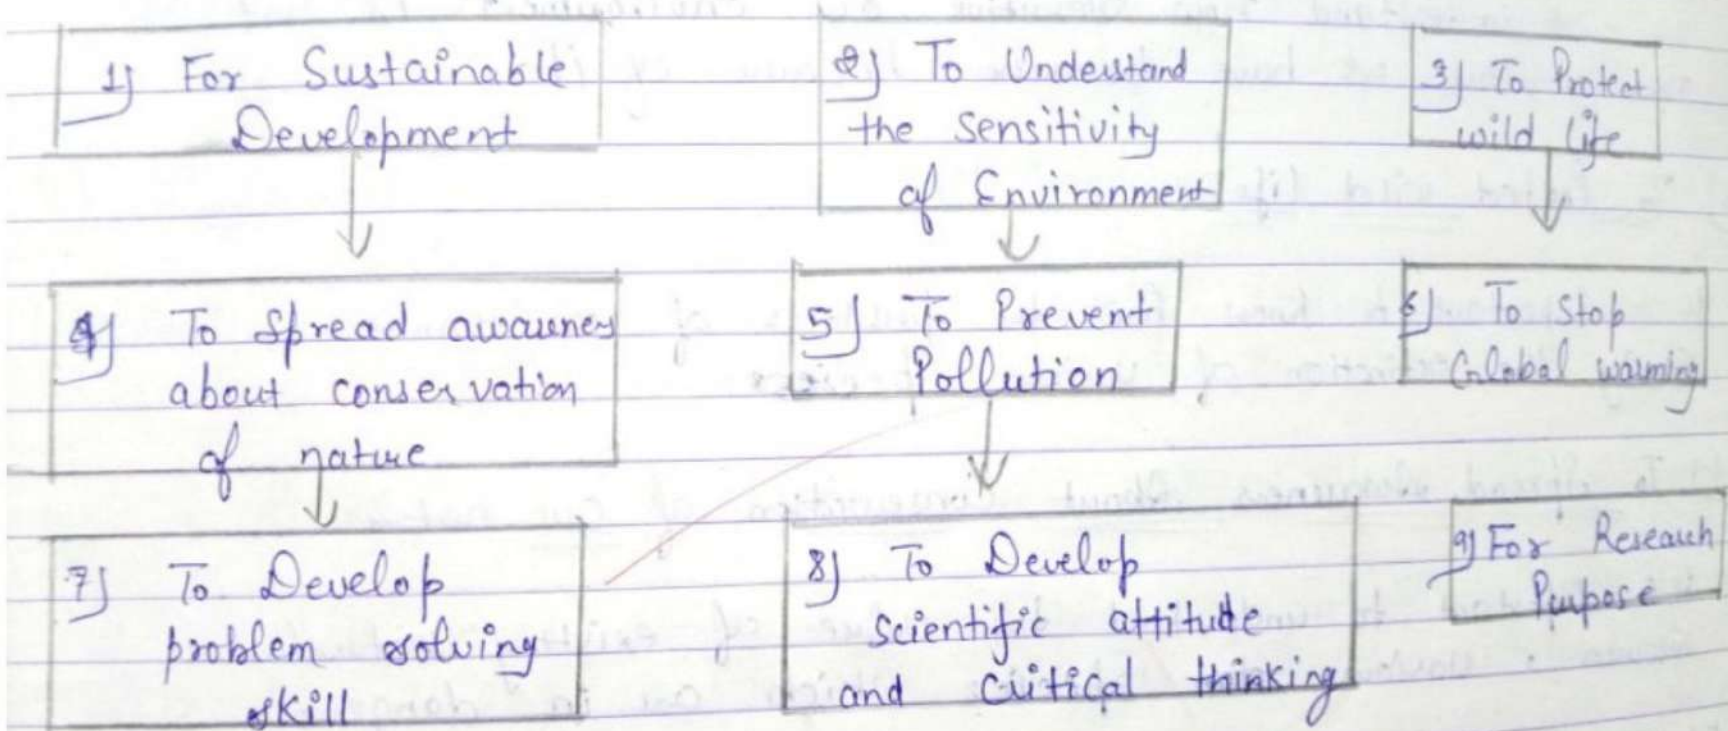 1) For Sustainable
Development
2) To Understand
the Sensitivity
of Environment
3) To Protect
wild life
4) To Spread awareness
about conservation
of nature
5) To Prevent
Pollution
6) To Stop
Global warming
7) To Develop
problem solving
skill
8) To Develop
scientific attitude
and critical thinking
9) For Research
Purpose